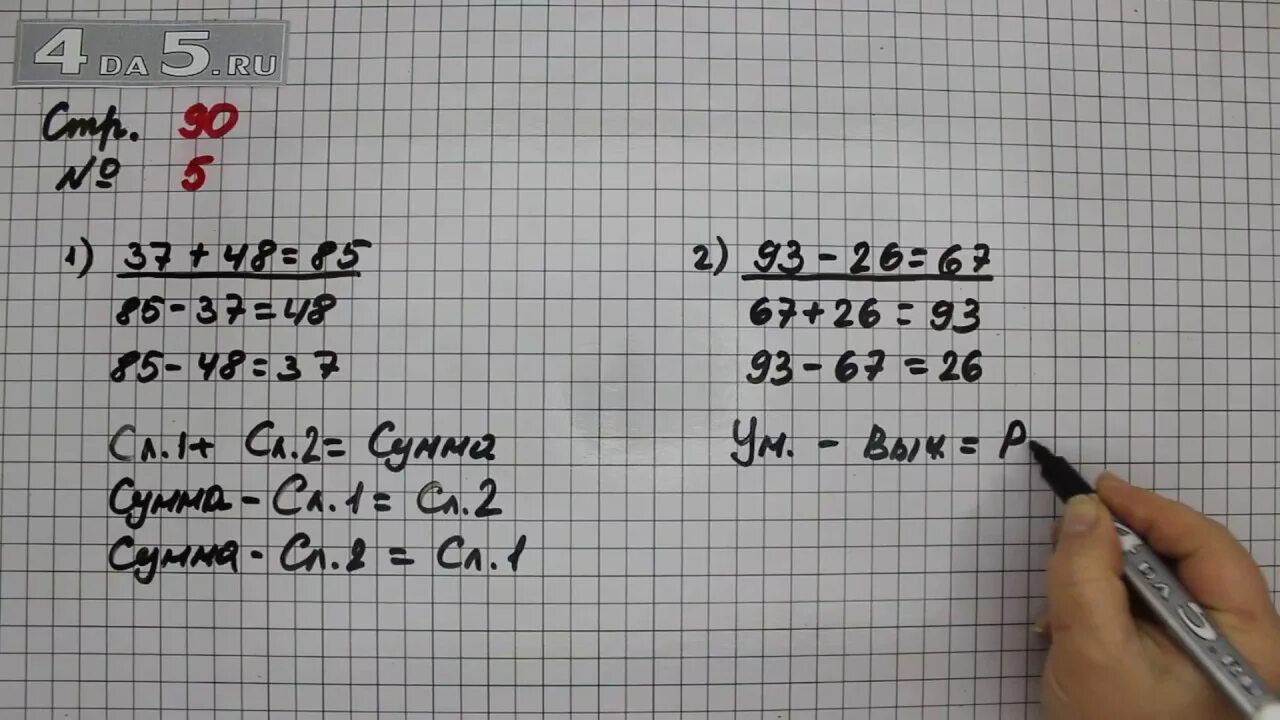 4DA5.RU
Стр. 90
№ 5
1) 37 + 48 = 85
85 - 37 = 48
85 - 48 = 37
Сл.1 + Сл.2 = Сумма
Сумма - Сл.1 = Сл.2
Сумма - Сл.2 = Сл.1
2) 93 - 26 = 67
67 + 26 = 93
93 - 67 = 26
Ум. - Выч = Р
4DA5.RU